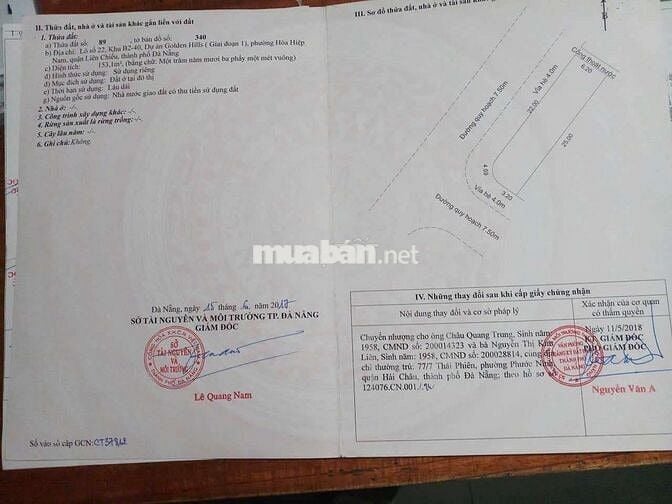 II. Thửa đất, nhà ở và tài sản khác gắn liền với đất
1. Thửa đất:
a) Thửa đất số: 89 , tờ bản đồ số: 340
b) Địa chỉ: Lô số 22, Khu B2-40, Dự án Golden Hills ( Giai đoạn 1), phường Hòa Hiệp
Nam, quận Liên Chiểu, thành phố Đà Nẵng
c) Diện tích: 153,1m², (bằng chữ: Một trăm năm mươi ba phẩy một mét vuông)
d) Hình thức sử dụng: Sử dụng riêng
đ) Mục đích sử dụng: Đất ở tại đô thị
e) Thời hạn sử dụng: Lâu dài
g) Nguồn gốc sử dụng: Nhà nước giao đất có thu tiền sử dụng đất
2. Nhà ở: -/-
3. Công trình xây dựng khác: -/-
4. Rừng sản xuất là rừng trồng: -/-
5. Cây lâu năm: -/-
6. Ghi chú: Không.
Đà Nẵng, ngày 15 tháng 6 năm 2017
SỞ TÀI NGUYÊN VÀ MÔI TRƯỜNG TP. ĐÀ NẴNG
GIÁM ĐỐC
SỞ
TÀI NGUYÊN
VÀ
MÔI TRƯỜNG
Lê Quang Nam
Số vào sổ cấp GCN:
III. Sơ đồ thửa đất, nhà ở và tài sản khác gắn liền với đất
B
Cống thoát nước
6.20
Vỉa hè 4.0m
Đường quy hoạch 7.50m
22.00
25.00
4.69
3.20
Vỉa hè 4.0m
Đường quy hoạch 7.50m
muaban.net
IV. Những thay đổi sau khi cấp giấy chứng nhận
Nội dung thay đổi và cơ sở pháp lý
Xác nhận của cơ quan
có thẩm quyền
Chuyển nhượng cho ông Châu Quang Trung, Sinh năm
1958, CMND số: 200014323 và bà Nguyễn Thị Kim
Liên, Sinh năm: 1958, CMND số: 200028814, cùng địa
chỉ thường trú: 77/7 Thái Phiên, phường Phước Ninh,
quận Hải Châu, thành phố Đà Nẵng; theo hồ sơ số
124076.CN.001./.
Ngày 11/5/2018
KT. GIÁM ĐỐC
PHÓ GIÁM ĐỐC
Nguyễn Văn A